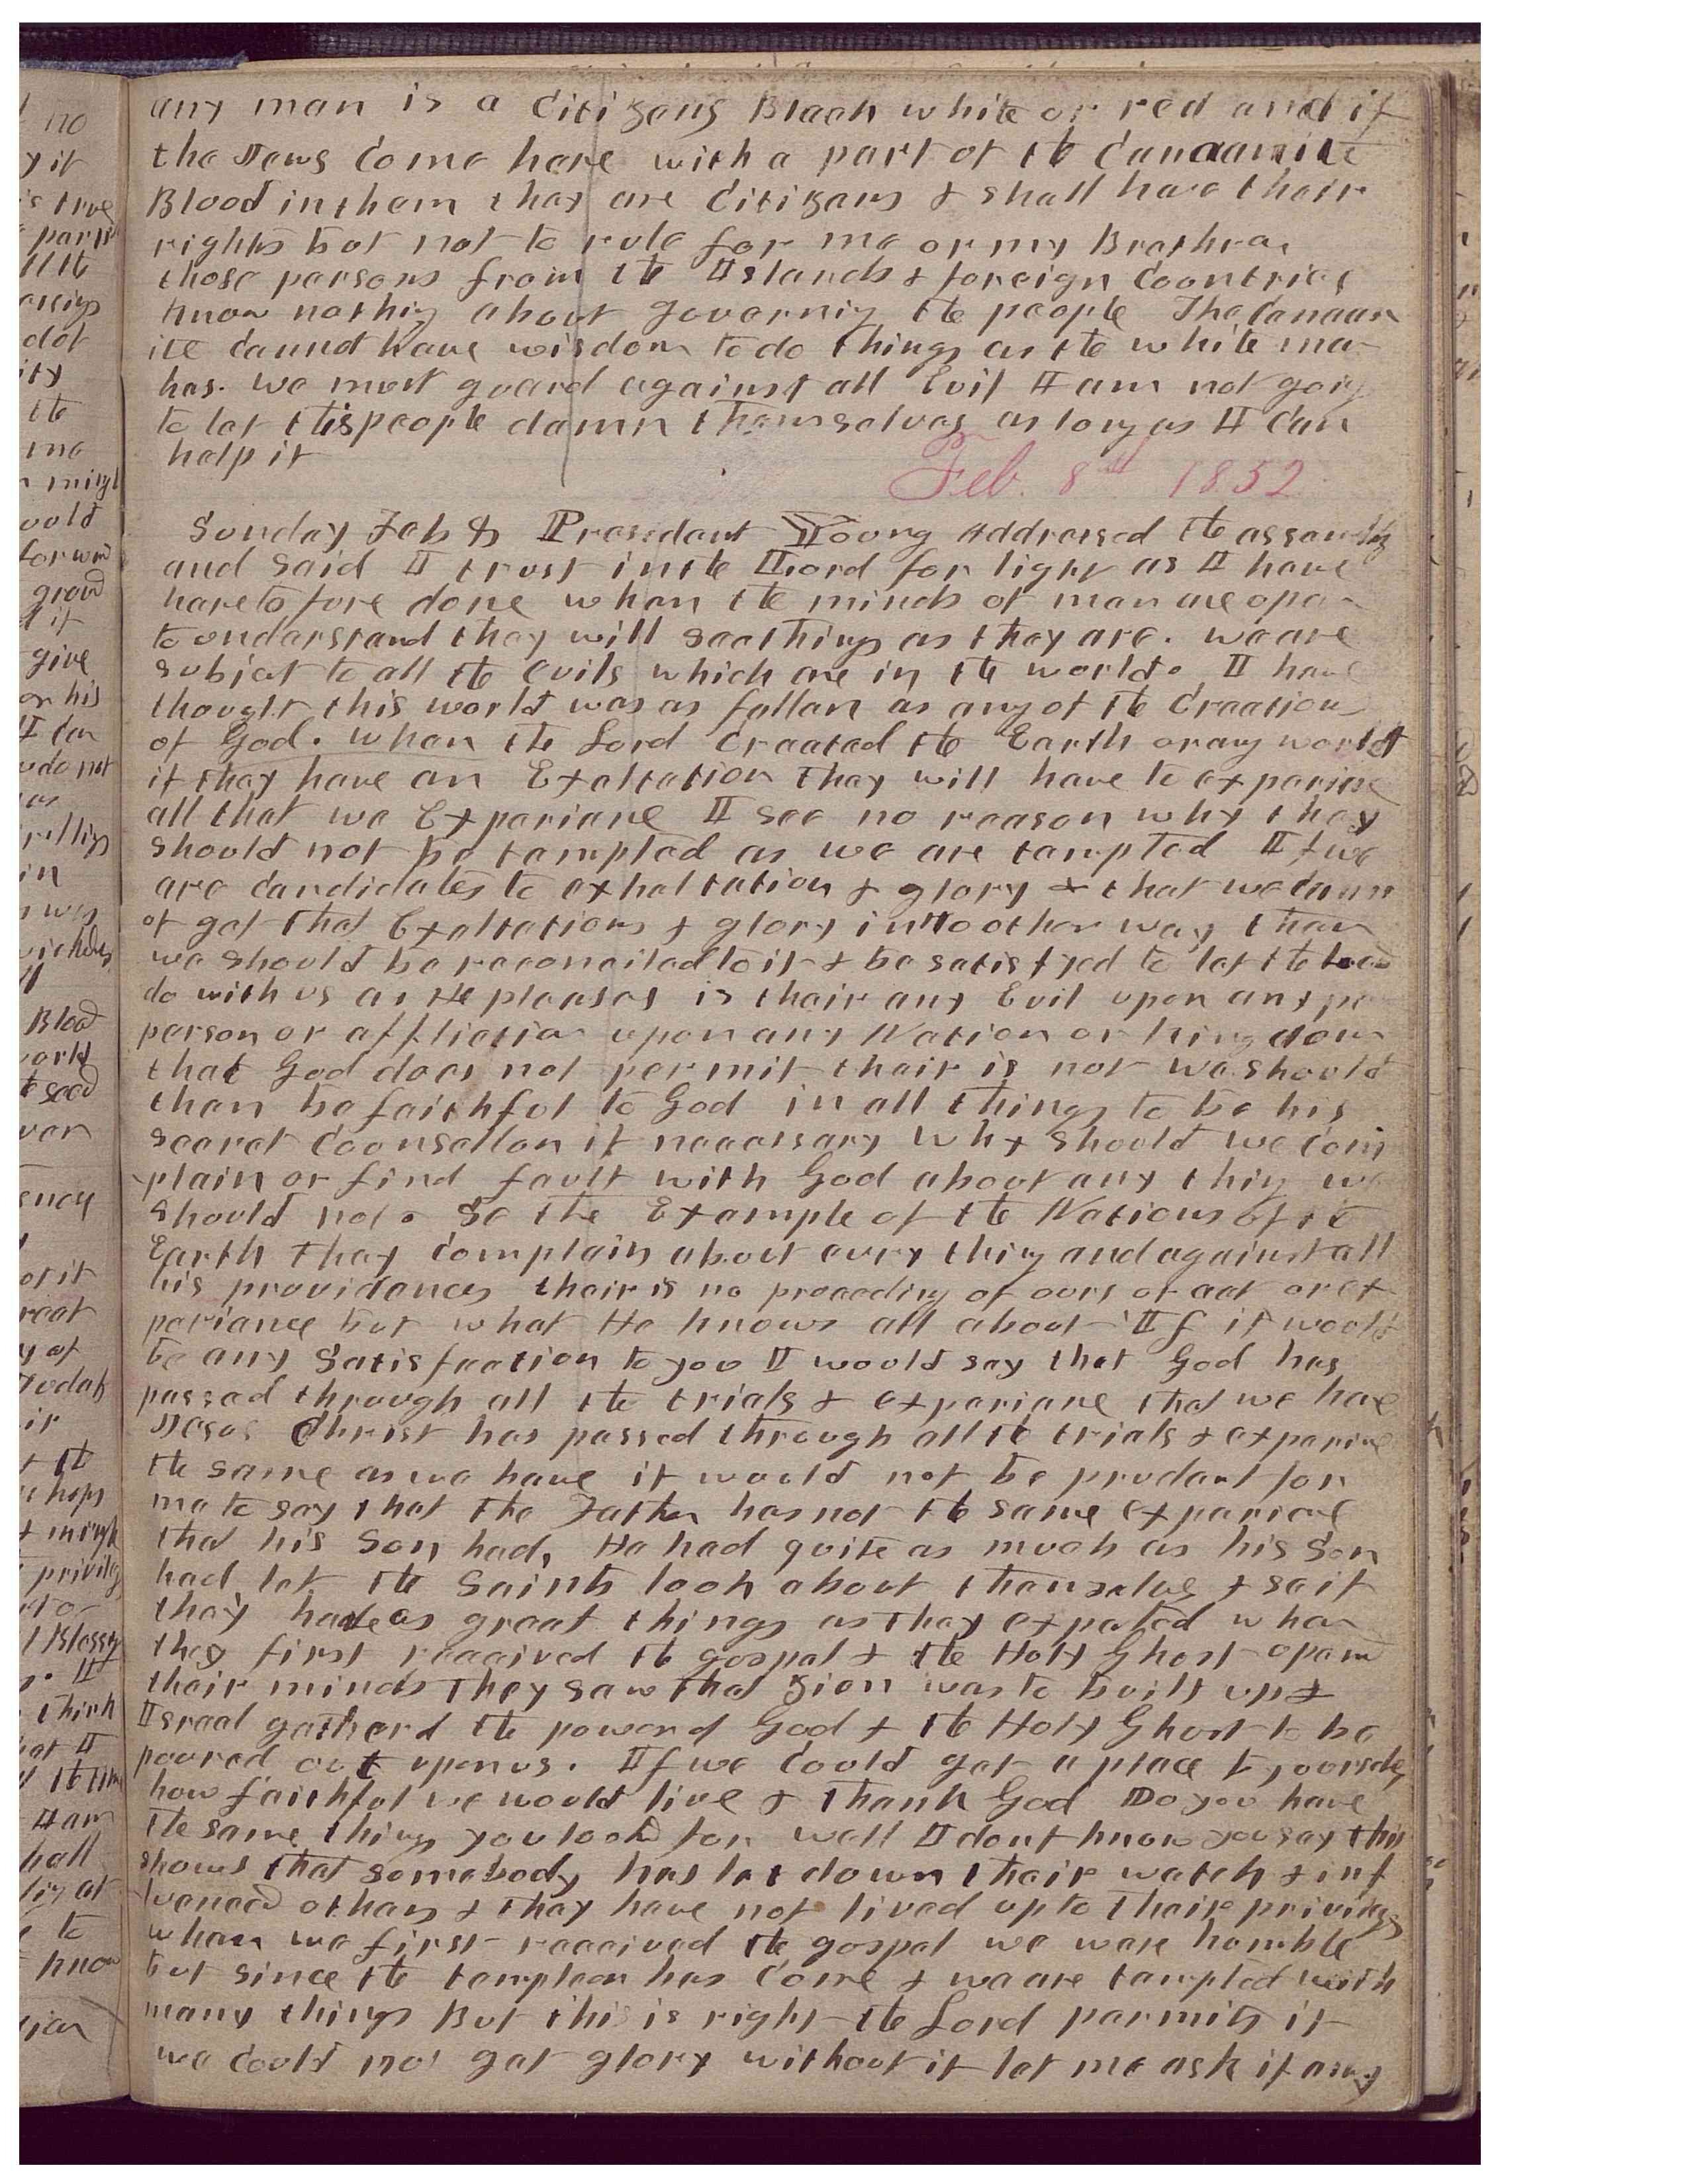 any man is a Citizens Black white or red and if
the Jews Come here with a part of the Canaanite
Blood in them they are Citizans & shall have their
rights but not to rule for me or my Brethren
those persons from the Islands & foreign Countries
know nothig about governig the people The Canaan
ite Cannot have wisdom to do things as the white man
has. we must guard against all Evil I am not goig
to let this people damn themselves as long as I Can
help it
Feb. 8th 1852
Sunday Feb 8 Presedent Young Addressed the assembly
and said I trust in the Lord for light as I have
heretofore done when the minds of man are open
to understand they will see things as they are. we are
subject to all the evils which are in the world. I have
thought this world was as fallen as any of the Creations
of God. when the Lord Created the Earth or any world
if they have an Exaltation they will have to experine
all that we Experiane I see no reason why they
should not be tempted as we are tempted If we
are Candidates to exhaltation & glory & that we cann
ot get that Exaltations & glory in No other way than
we should be reconciled to it & be satisfyed to let the Lord
do with us as He pleases is their any Evil upon any pe
person or affliction upon any Nation or kingdom
that God does not permit their is not we should
then be faithful to God in all things to be his
secret Counsellor if necessary why should we Com
plain or find fault with God about any thig we
should not. Se the Example of the Nations of the
Earth they Complain about evry thing and against all
his providences their is no proceeding of ours of act or ex
periance but what He knows all about If it would
be any Satisfaction to you I would say that God has
passed through all the trials & experiane that we have
Jesus Christ has passed through all the trials & experine
the same as we have it would not be prudent for
me to say that the Father has not the same experiane
that his Son had, He had quite as much as his Son
had let the Saints look about themselves & se if
they have as great things as they expected when
they first received the gospel & the Holy Ghost opend
their minds They saw that Zion was to built up &
Israel gatherd the power of God & the Holy Ghost to be
poured out upon us. If we Could get a place by ourselves
how faithful we would live & Thank God Do you have
the same things you lookd for well I dont know you say this
shows that somebody has let down their watch & inf
luenced others & they have not lived up to their privileges
when we first received the gospel we were humble
but since the templeer has Come & we are tempted with
many things But this is right the Lord permits it
we Could not get glory without it let me ask if any